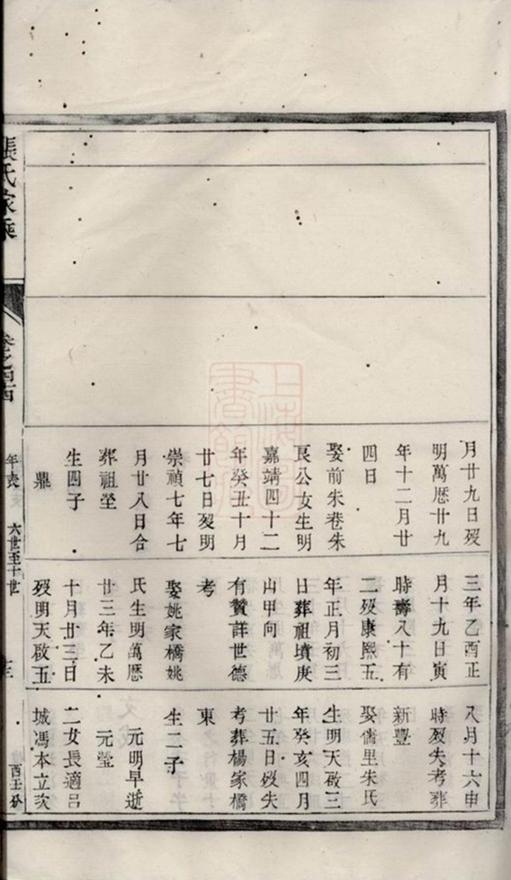 月廿九日歿
明萬厯廿九
年十二月廿
四日
娶前朱巷朱
艮公女生明
嘉靖四十二
年癸丑十月
廿七日歿明
崇禎七年七
月廿八日合
葬祖塋
生四子
鼎
三年乙酉正
月十九日寅
時壽八十有
二歿康熙五
年正月初三
日葬祖墳庚
山甲向
有贊詳世德
考
娶姚家橋姚
氏生明萬厯
廿三年乙未
十月廿三日
歿明天啟五
八月十六申
時歿失考葬
新豐
娶儒里朱氏
生明天啟三
年癸亥四月
廿五日歿失
考葬楊家橋
東
生二子
元明早逝
元瑩
二女長適呂
城馮本立次
張氏家乘
卷之四
年表
六世至十世